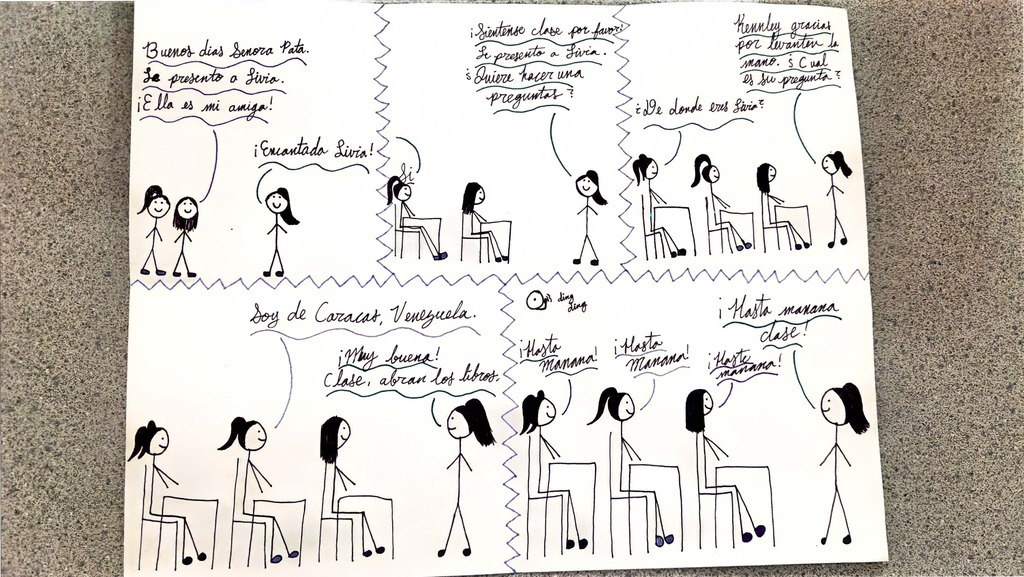 Buenos dias Senora Pata.
Le presento a Livia.
¡Ella es mi amiga!
¡Encantada Livia!
¡Sientense clase por favor!
Le presento a Livia.
¿Quiere hacer una
preguntas?
Si
Kennley gracias
por levanten la
mano. ¿Cual
es su pregunta?
¿De donde eres Livia?
Soy de Caracas, Venezuela.
¡Muy buena!
Clase, abran los libros.
ding
ding
¡Hasta
manana!
¡Hasta
manana!
¡Hasta
manana!
¡Hasta manana
clase!